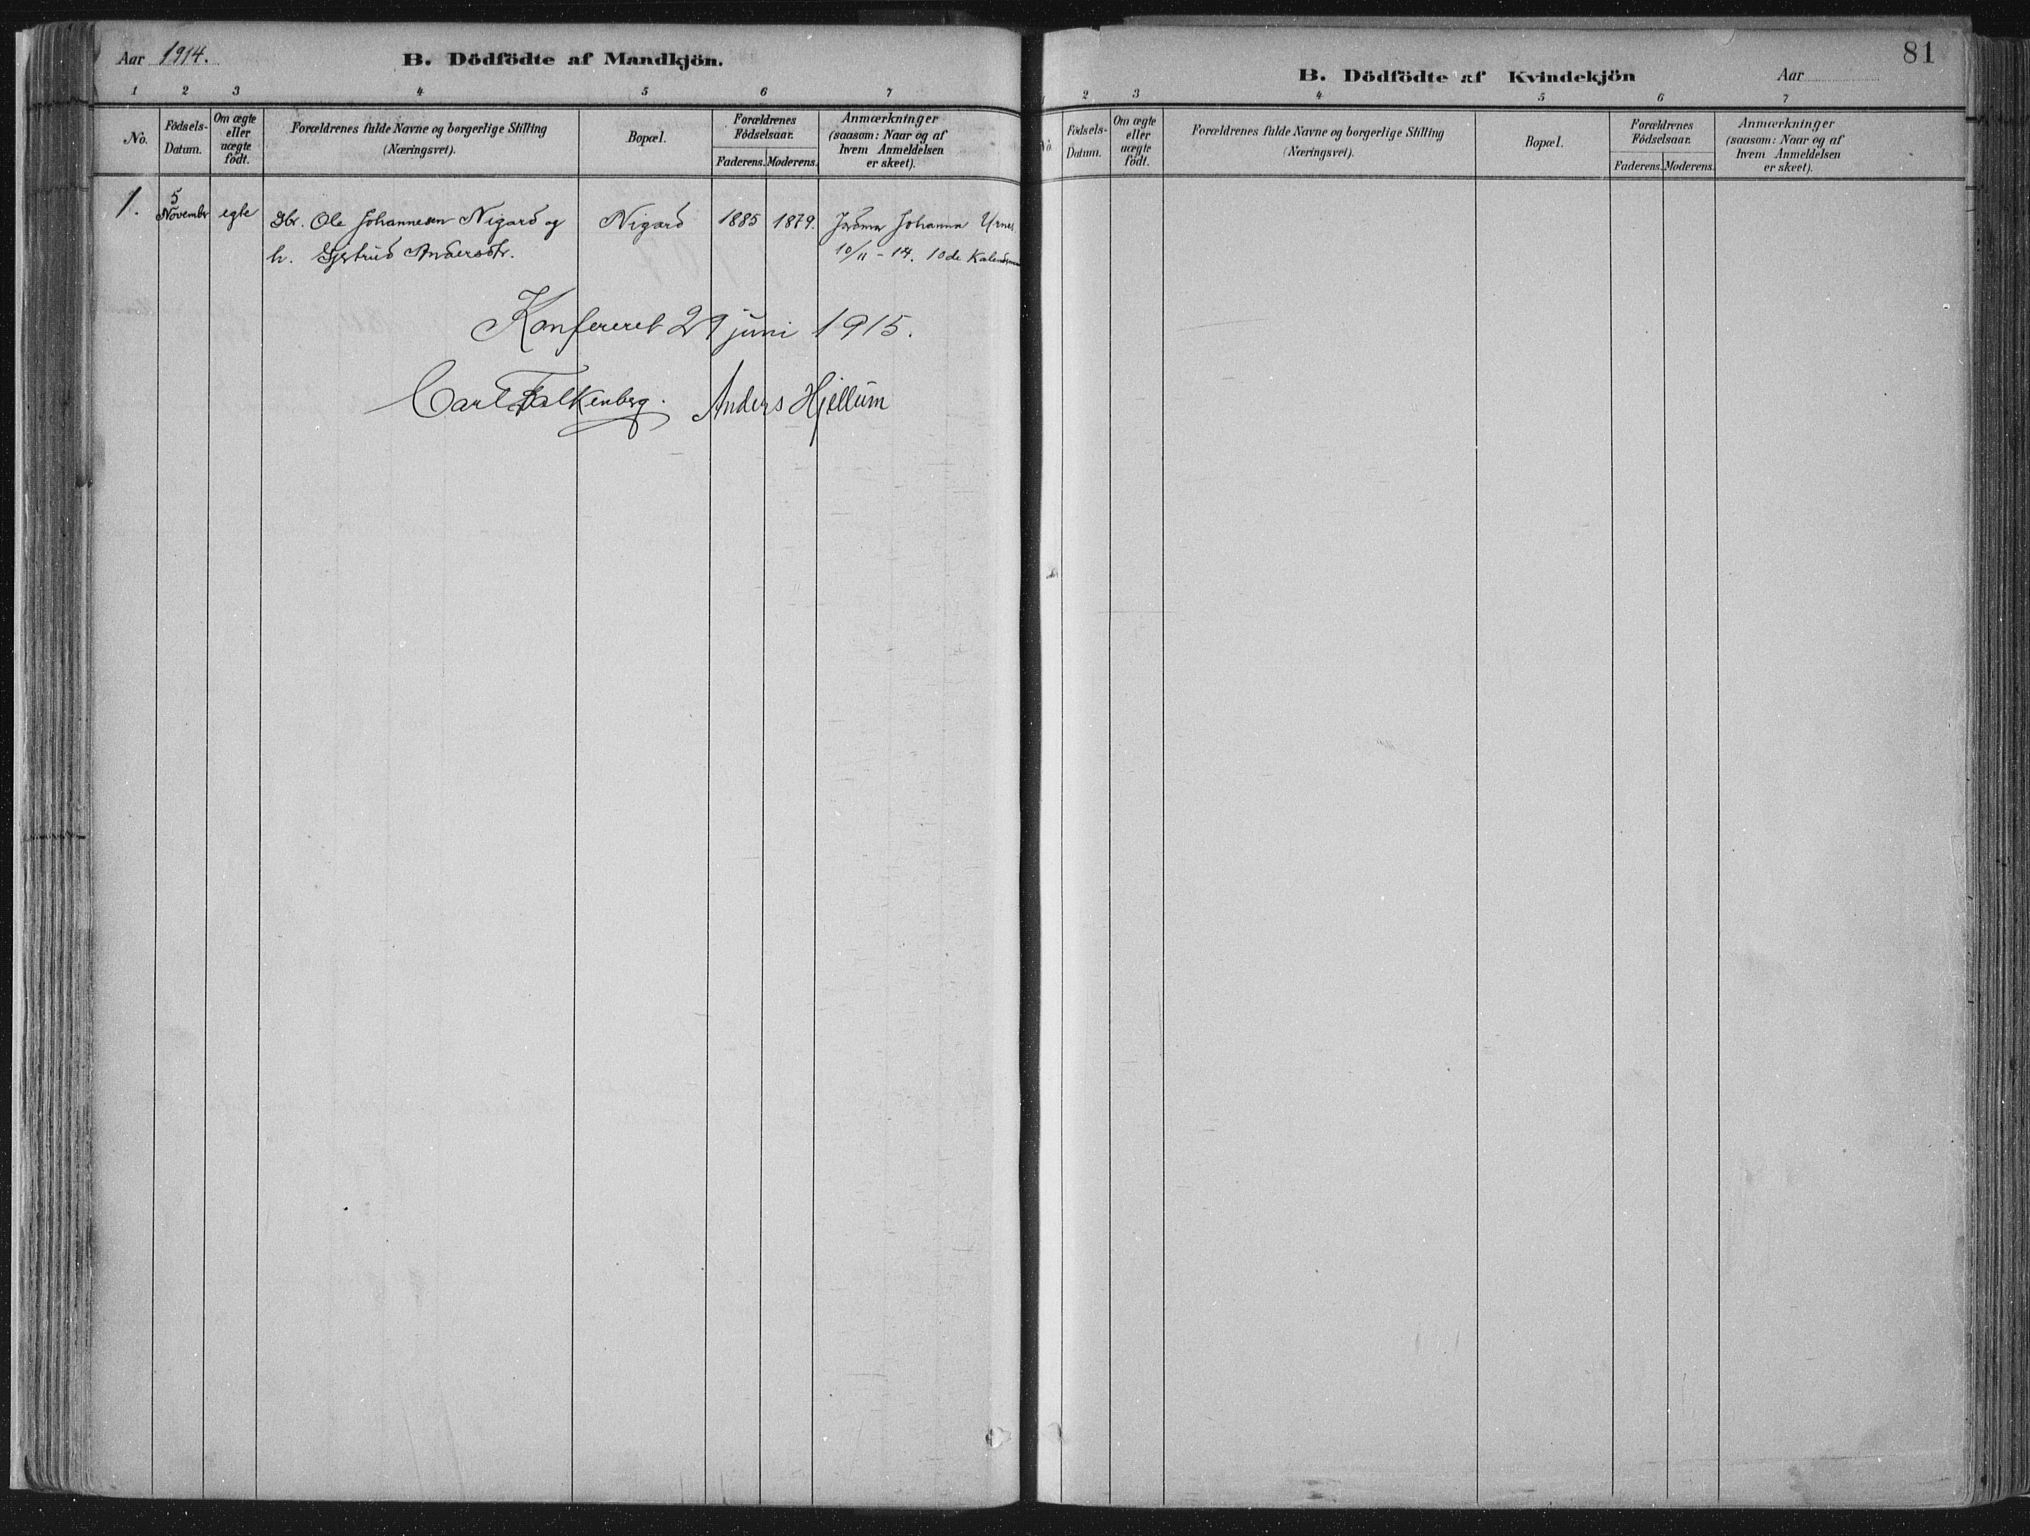 Aar 1914.
B. Dödfödte af Mandkjön.
1 2 3 4 5 6 7
No.
Födsels-
Datum.
Om ægte
eller
uægte
født.
Forældrenes fulde Navne og borgerlige Stilling
(Næringsvei).
Bopæl.
Forældrenes
Födselsaar.
Faderens. Moderens.
Anmærkninger
(saasom: Naar og af
hvem Anmeldelsen
er skeet).
1.
5
November
egte
Gbr. Ole Johannesen Nigard og
h. Gjertrud Andersdtr.
Nigard
1885
1879.
Jordmor Johanna Urnes
10/11 - 14. 10de
Konfereret 29 juni 1915.
Carl Falkenberg. Anders Hjellum
81
B. Dödfödte af Kvindekjön
Aar
2 3 4 5 6 7
No.
Födsels-
Datum.
Om ægte
eller
uægte
født.
Forældrenes fulde Navne og borgerlige Stilling
(Næringsvei).
Bopæl.
Forældrenes
Födselsaar.
Faderens. Moderens.
Anmærkninger
(saasom: Naar og af
hvem Anmeldelsen
er skeet).